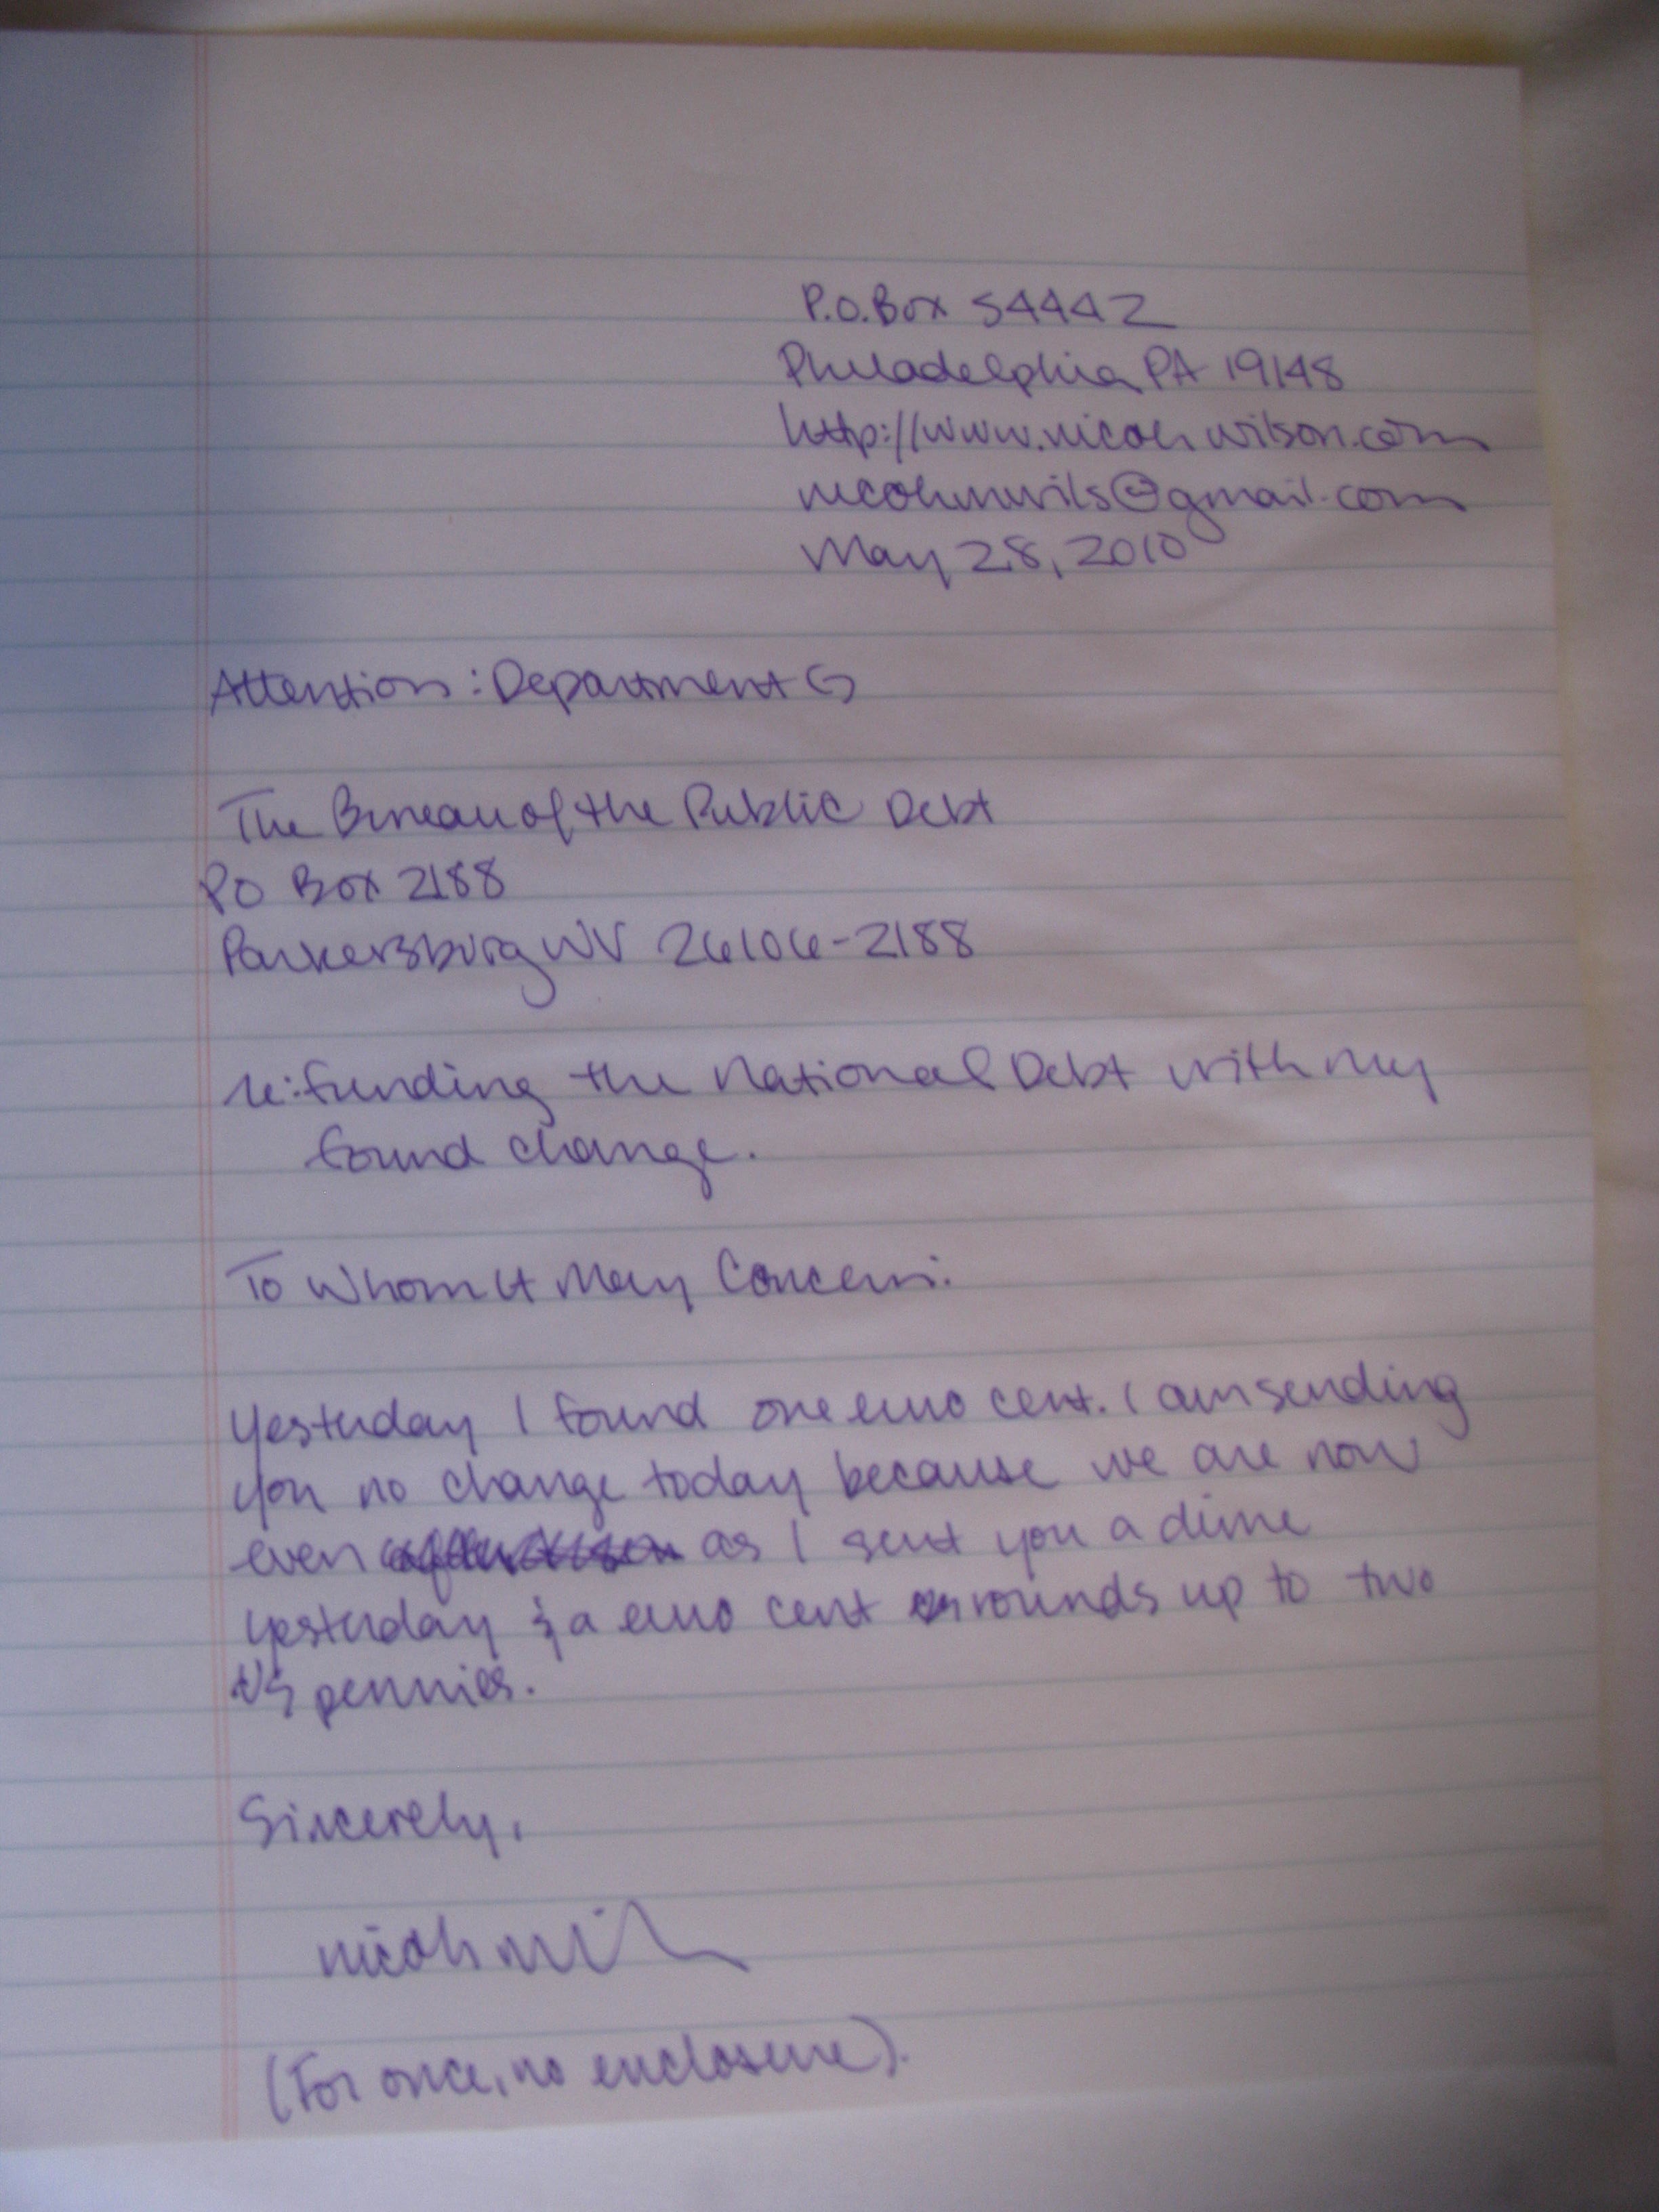 P.O. Box 54442
Philadelphia, PA 19148
http://www.nicoliwilson.com
May 28, 2010
Attention: Department G
The Bureau of the Public Debt
PO Box 2188
Parkersburg WV 26106-2188
re: funding the National Debt with my
found change.
To Whom It May Concern:
Yesterday I found one euro cent. I am sending
you no change today because we are now
even as I sent you a dime
yesterday & a euro cent rounds up to two
US pennies.
Sincerely,
(For once, no enclosure).